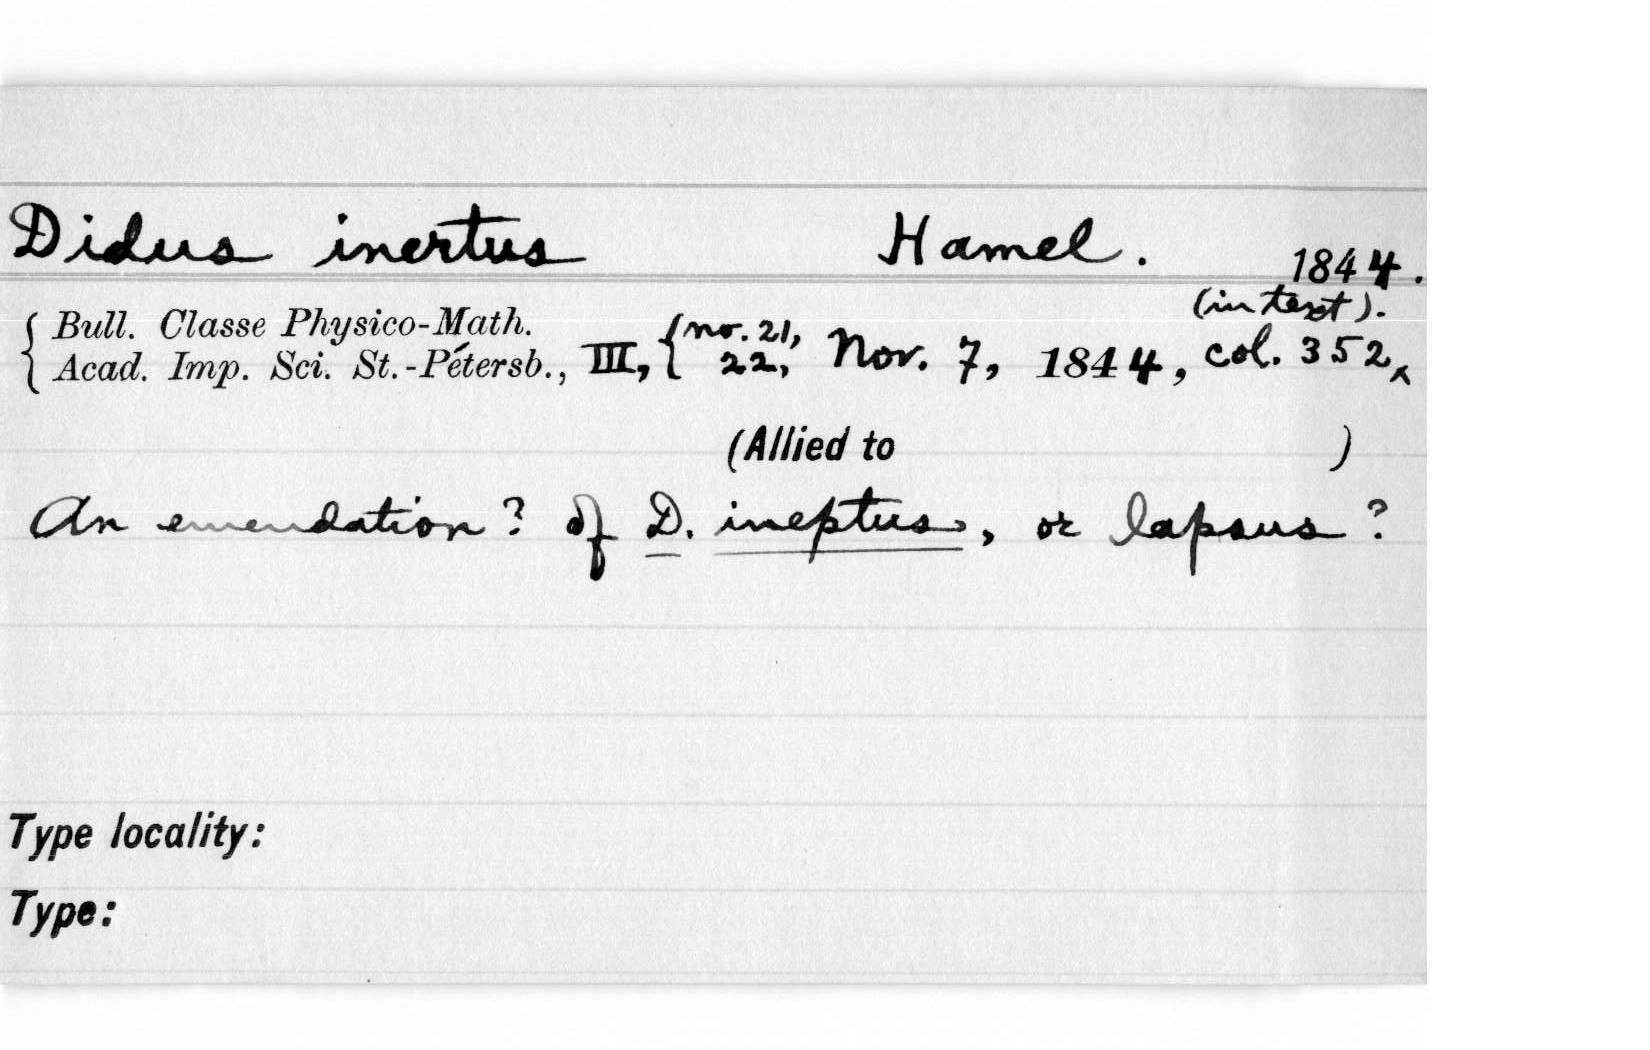 Didus inertus Hamel. 1844.
(in text).
Bull. Classe Physico-Math.
Acad. Imp. Sci. St.-Pétersb., III, { no. 21, 22, Nov. 7, 1844, col. 352
(Allied to )
An emendation? of D. ineptus, or lapsus?
Type locality:
Type: